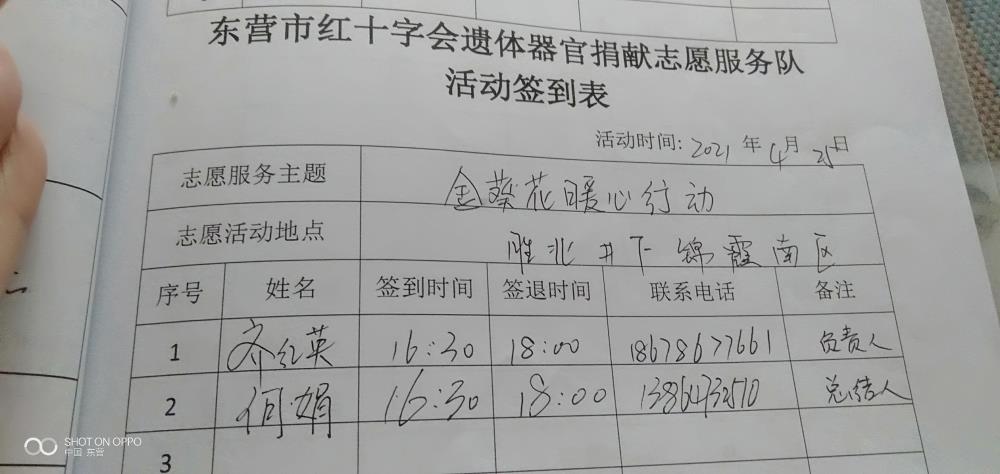 东营市红十字会遗体器官捐献志愿服务队
活动签到表
活动时间: 2021 年 4 月 25 日
志愿服务主题 金葵花暖心行动
志愿活动地点 胜北井下锦霞南区
序号 姓名 签到时间 签退时间 联系电话 备注
1 齐红英 16:30 18:00 18678677661 负责人
2 何娟 16:30 18:00 13864732510 总结人
3
SHOT ON OPPO
中国 东营